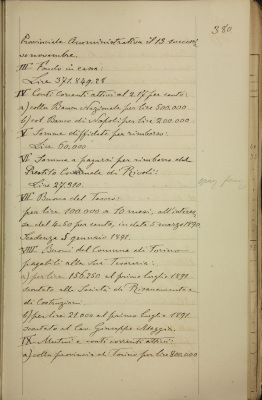 380
Provinciale Amministrativa il 13 succes-
sivo novembre.
III° Fondo in cassa:
Lire 371.849.28
IV Conti correnti attivi al 2.17 per cento:
a) colla Banca Nazionale per lire 500.000
b) col Banco di Napoli per lire 200.000
V° Somme diffidate per rimborso:
Lire 60.000
VI° Somme a pagarsi per rimborso del
Prestito Comunale di Rivoli:
Lire 27.910
VII° Buono del Tesoro:
per lire 100.000 a 10 mesi, all'interes-
se del 4.50 per cento, in data 5 marzo 1890,
scadenza 5 gennaio 1891.
VIII° Buoni del Comune di Torino
pagabili alla sua Tesoreria:
a) per lire 156.250 al primo luglio 1891
scontato alla Società di Risanamento e
di Costruzioni
b) per lire 21.000 al primo luglio 1891
scontato al Cav. Giuseppe
IX Mutui e conti correnti attivi:
a) colla provincia di Torino per lire 800.000